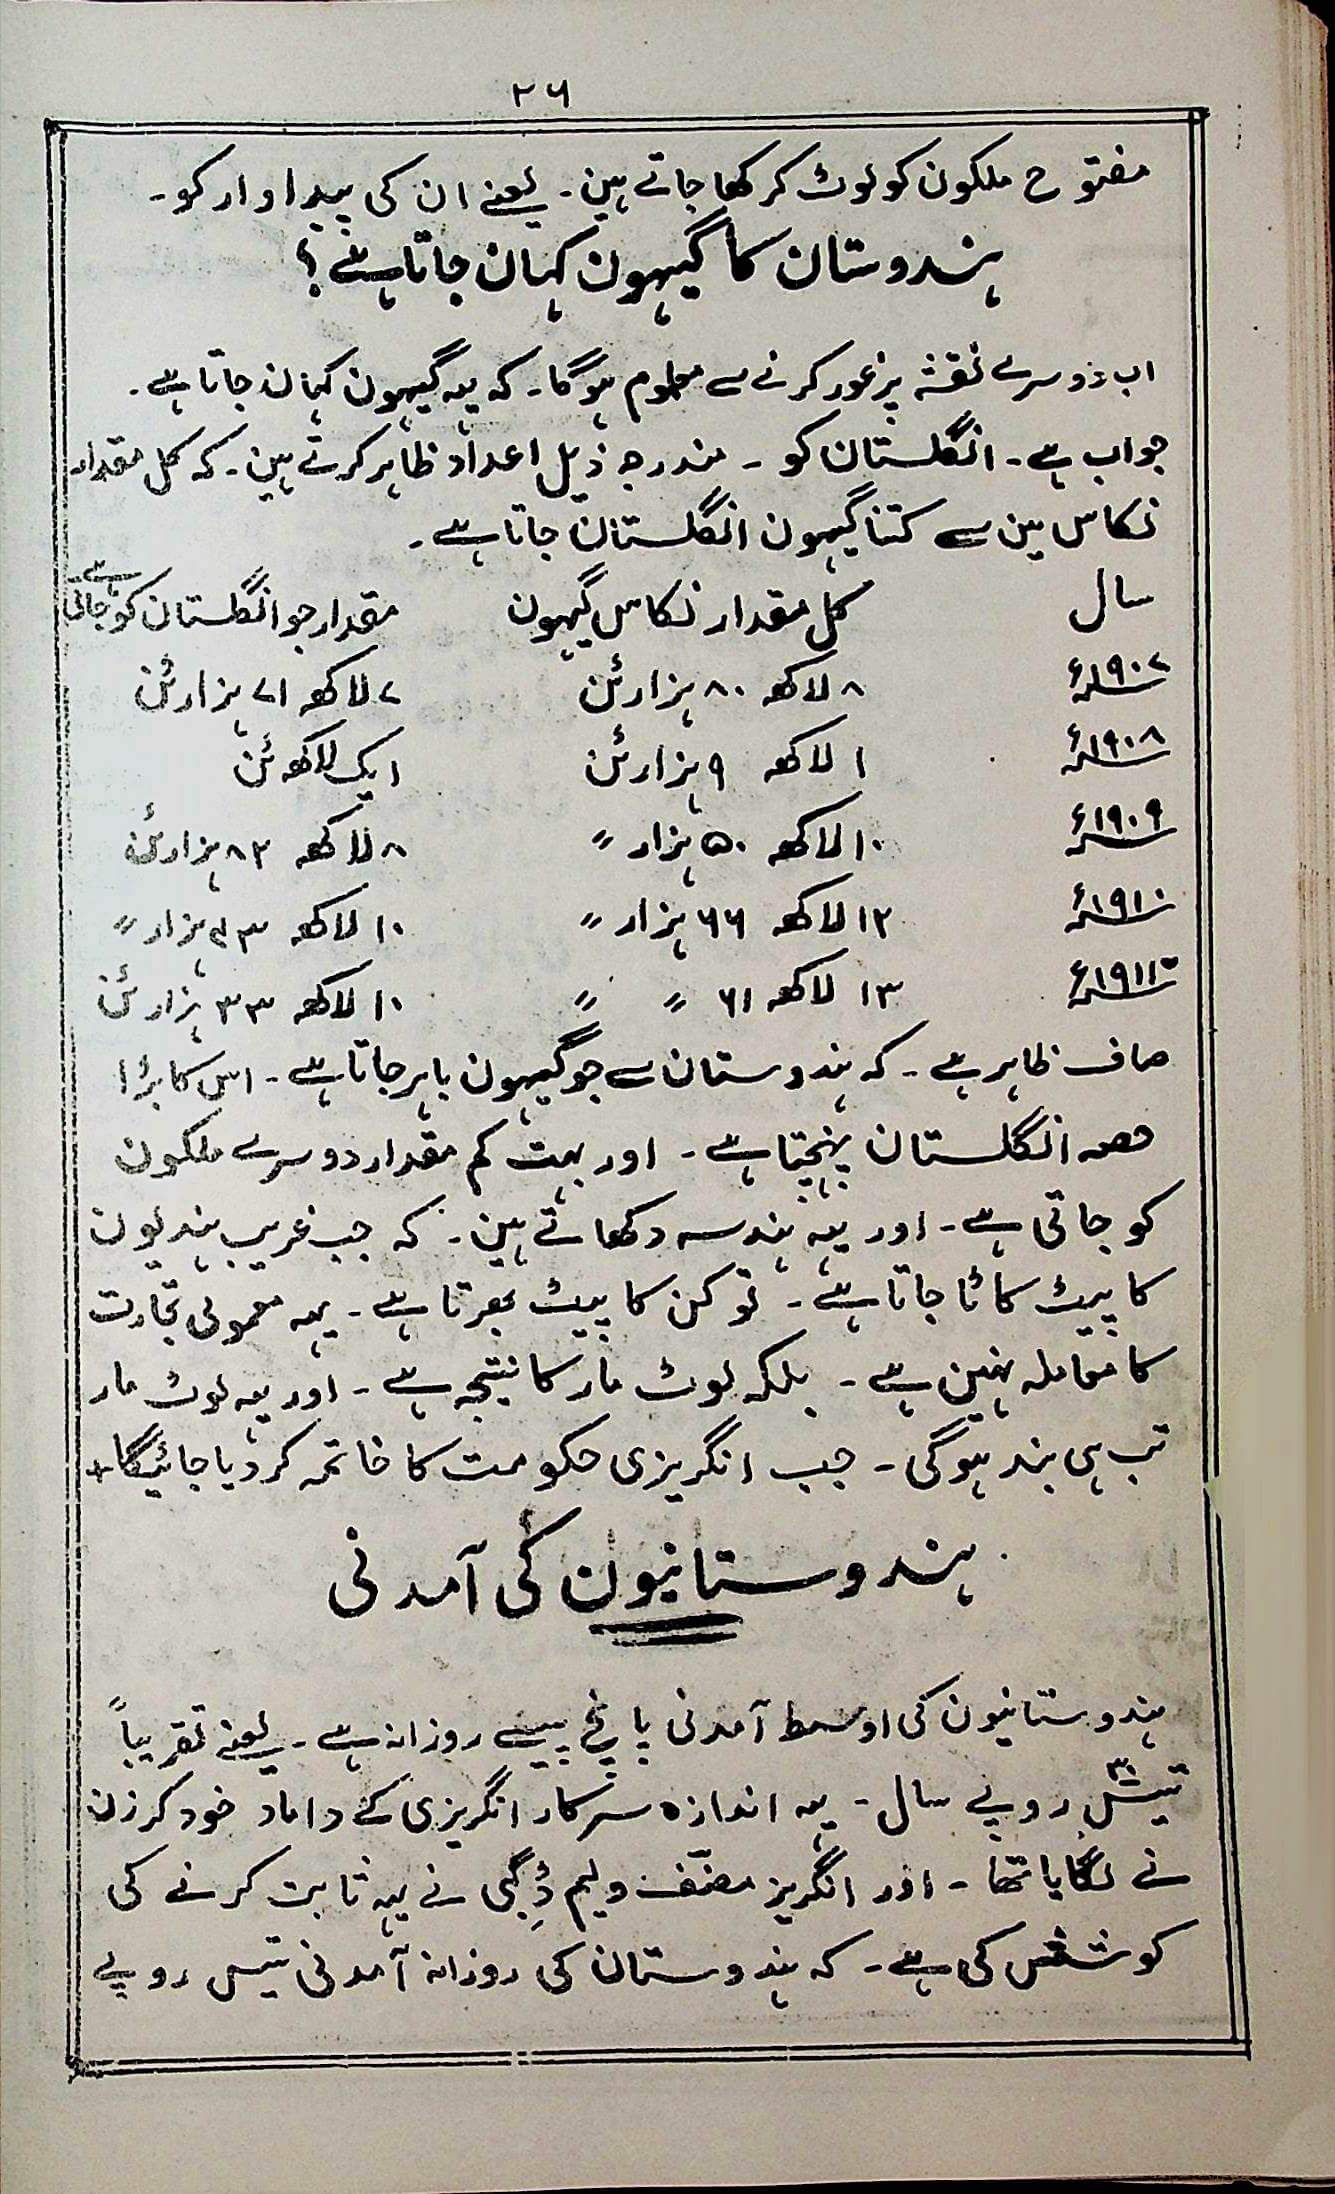 ۲۶
مفتوح ملکون کو لوٹ کر کھا جاتے ہین ۔ یعنے ان کی پیداوار کو ۔
ہندوستان کا گیہون کہان جاتا ہے ؟
اب دوسرے نقشہ پر غور کرنے سے معلوم ہوگا ۔ کہ یہ گیہون کہان جاتا ہے ۔
جواب ہے ۔ انگلستان کو ۔ مندرجہ ذیل اعداد ظاہر کرتے ہین ۔ کہ کل مقدار
نکاس مین سے کتنا گیہون انگلستان جاتا ہے ۔
سال کل مقدار نکاس گیہون مقدار جو انگلستان کو جاتی ہے
۱۹۰۷ء ۸ لاکھ ۸۰ ہزار ٹن ۷ لاکھ ۷۱ ہزار ٹن
۱۹۰۸ء ۱ لاکھ ۹ ہزار ٹن ایک لاکھ ٹن
۱۹۰۹ء ۱۰ لاکھ ۵۰ ہزار 〃 ۸ لاکھ ۸۲ ہزار ٹن
۱۹۱۰ء ۱۲ لاکھ ۶۶ ہزار 〃 ۱۰ لاکھ ہزار 〃
۱۹۱۱ء ۱۳ لاکھ ۶۱ 〃 〃 ۱۰ لاکھ ۳۳ ہزار ٹن
صاف ظاہر ہے ۔ کہ ہندوستان سے جو گیہون باہر جاتا ہے ۔ اس کا بڑا
حصہ انگلستان پہنچتا ہے ۔ اور بہت کم مقدار دوسرے ملکون
کو جاتی ہے ۔ اور یہ ہندسہ دکھاتے ہین ۔ کہ جب غریب ہندیون
کا پیٹ کاٹا جاتا ہے ۔ تو کن کا پیٹ بھرتا ہے ۔ یہہ معمولی تجارت
کا معاملہ نہین ہے ۔ بلکہ لوٹ مار کا نتیجہ ہے ۔ اور یہ لوٹ مار
تب ہی بند ہوگی ۔ جب انگریزی حکومت کا خاتمہ کر دیا جائیگا +
ہندوستانیون کی آمدنی
ہندوستانیون کی اوسط آمدنی پانچ پیسے روزانہ ہے ۔ یعنے تقریباً
تیس ۳۰ روپے سال ۔ یہ اندازہ سرکار انگریزی کے داماد خود کرزن
نے لگایا تھا ۔ اور انگریز مصنّف ولیم ڈِگبی نے یہ ثابت کرنے کی
کوشش کی ہے ۔ کہ ہندوستان کی روزانہ آمدنی تیس روپے